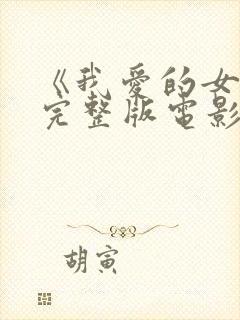 《我爱的女
完整版电影
胡寅